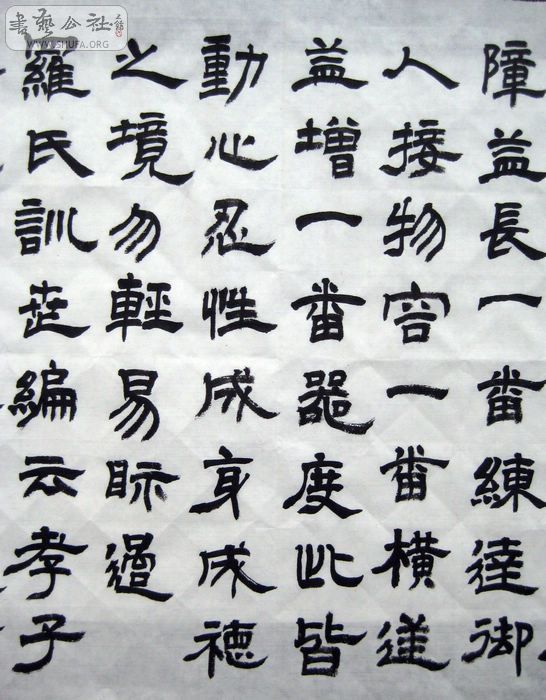 障益長一番練達御
人接物容一番橫逆
益增一番器度此皆
動心忍性成身成德
之境勿輕易眎過
羅氏訓世編云孝子
書藝公社
WWW.SHUFA.ORG